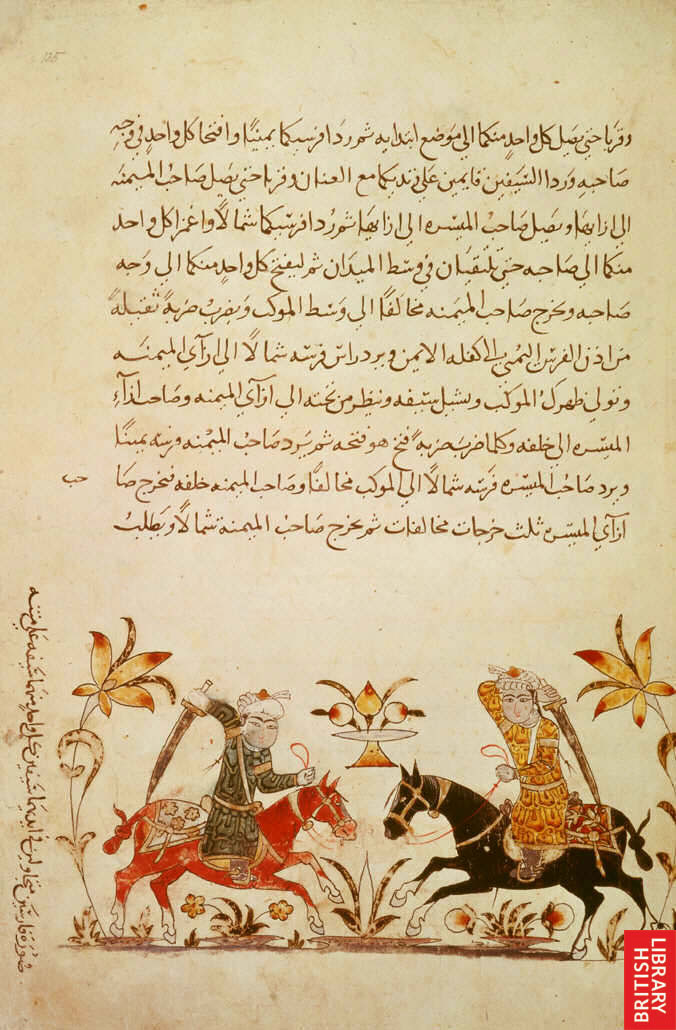 135
وقربا حتى يصل كل واحد منكما الى موضع ابتدايه ثم ردا فرسيكما يمينا وافتحا كل واحد في وجه
صاحبه وردا السيفين قايمين على زنديكما مع العنان وقربا حتى يصل صاحب الميمنه
الى ازايها ويصيل صاحب الميسره الى ازايها ثم ردا فرسيكما شمالا واغمزا كل واحد
منكما الى صاحبه حتى تلتقيان في وسط الميدان ثم ليفتح كل واحد منكما الى وجه
صاحبه ويخرج صاحب الميمنه مخالفا الى وسط الموكب ويضرب ضربة ثقيلة
من اذن الفرس اليمنى الى كفله الايمن ويرد راس فرسه شمالا الى ازآي الميمنه
وتولي ظهرك الموكب ويشيل سيفه وينظر من تحته الى ازآي الميمنه وصاحب ازآء
الميسره الى خلفه وكلما ضرب ضربة فتح هو فتحه ثم يرد صاحب الميمنه فرسه يمينا
ويرد صاحب الميسره فرسه شمالا الى الموكب مخالفا وصاحب الميمنه خلفه فيخرج صا حب
ازآي الميسره ثلث خرجات مخالفات ثم يخرج صاحب الميمنة شمالا ويطلب
صورة فارسين
BRITISH
LIBRARY